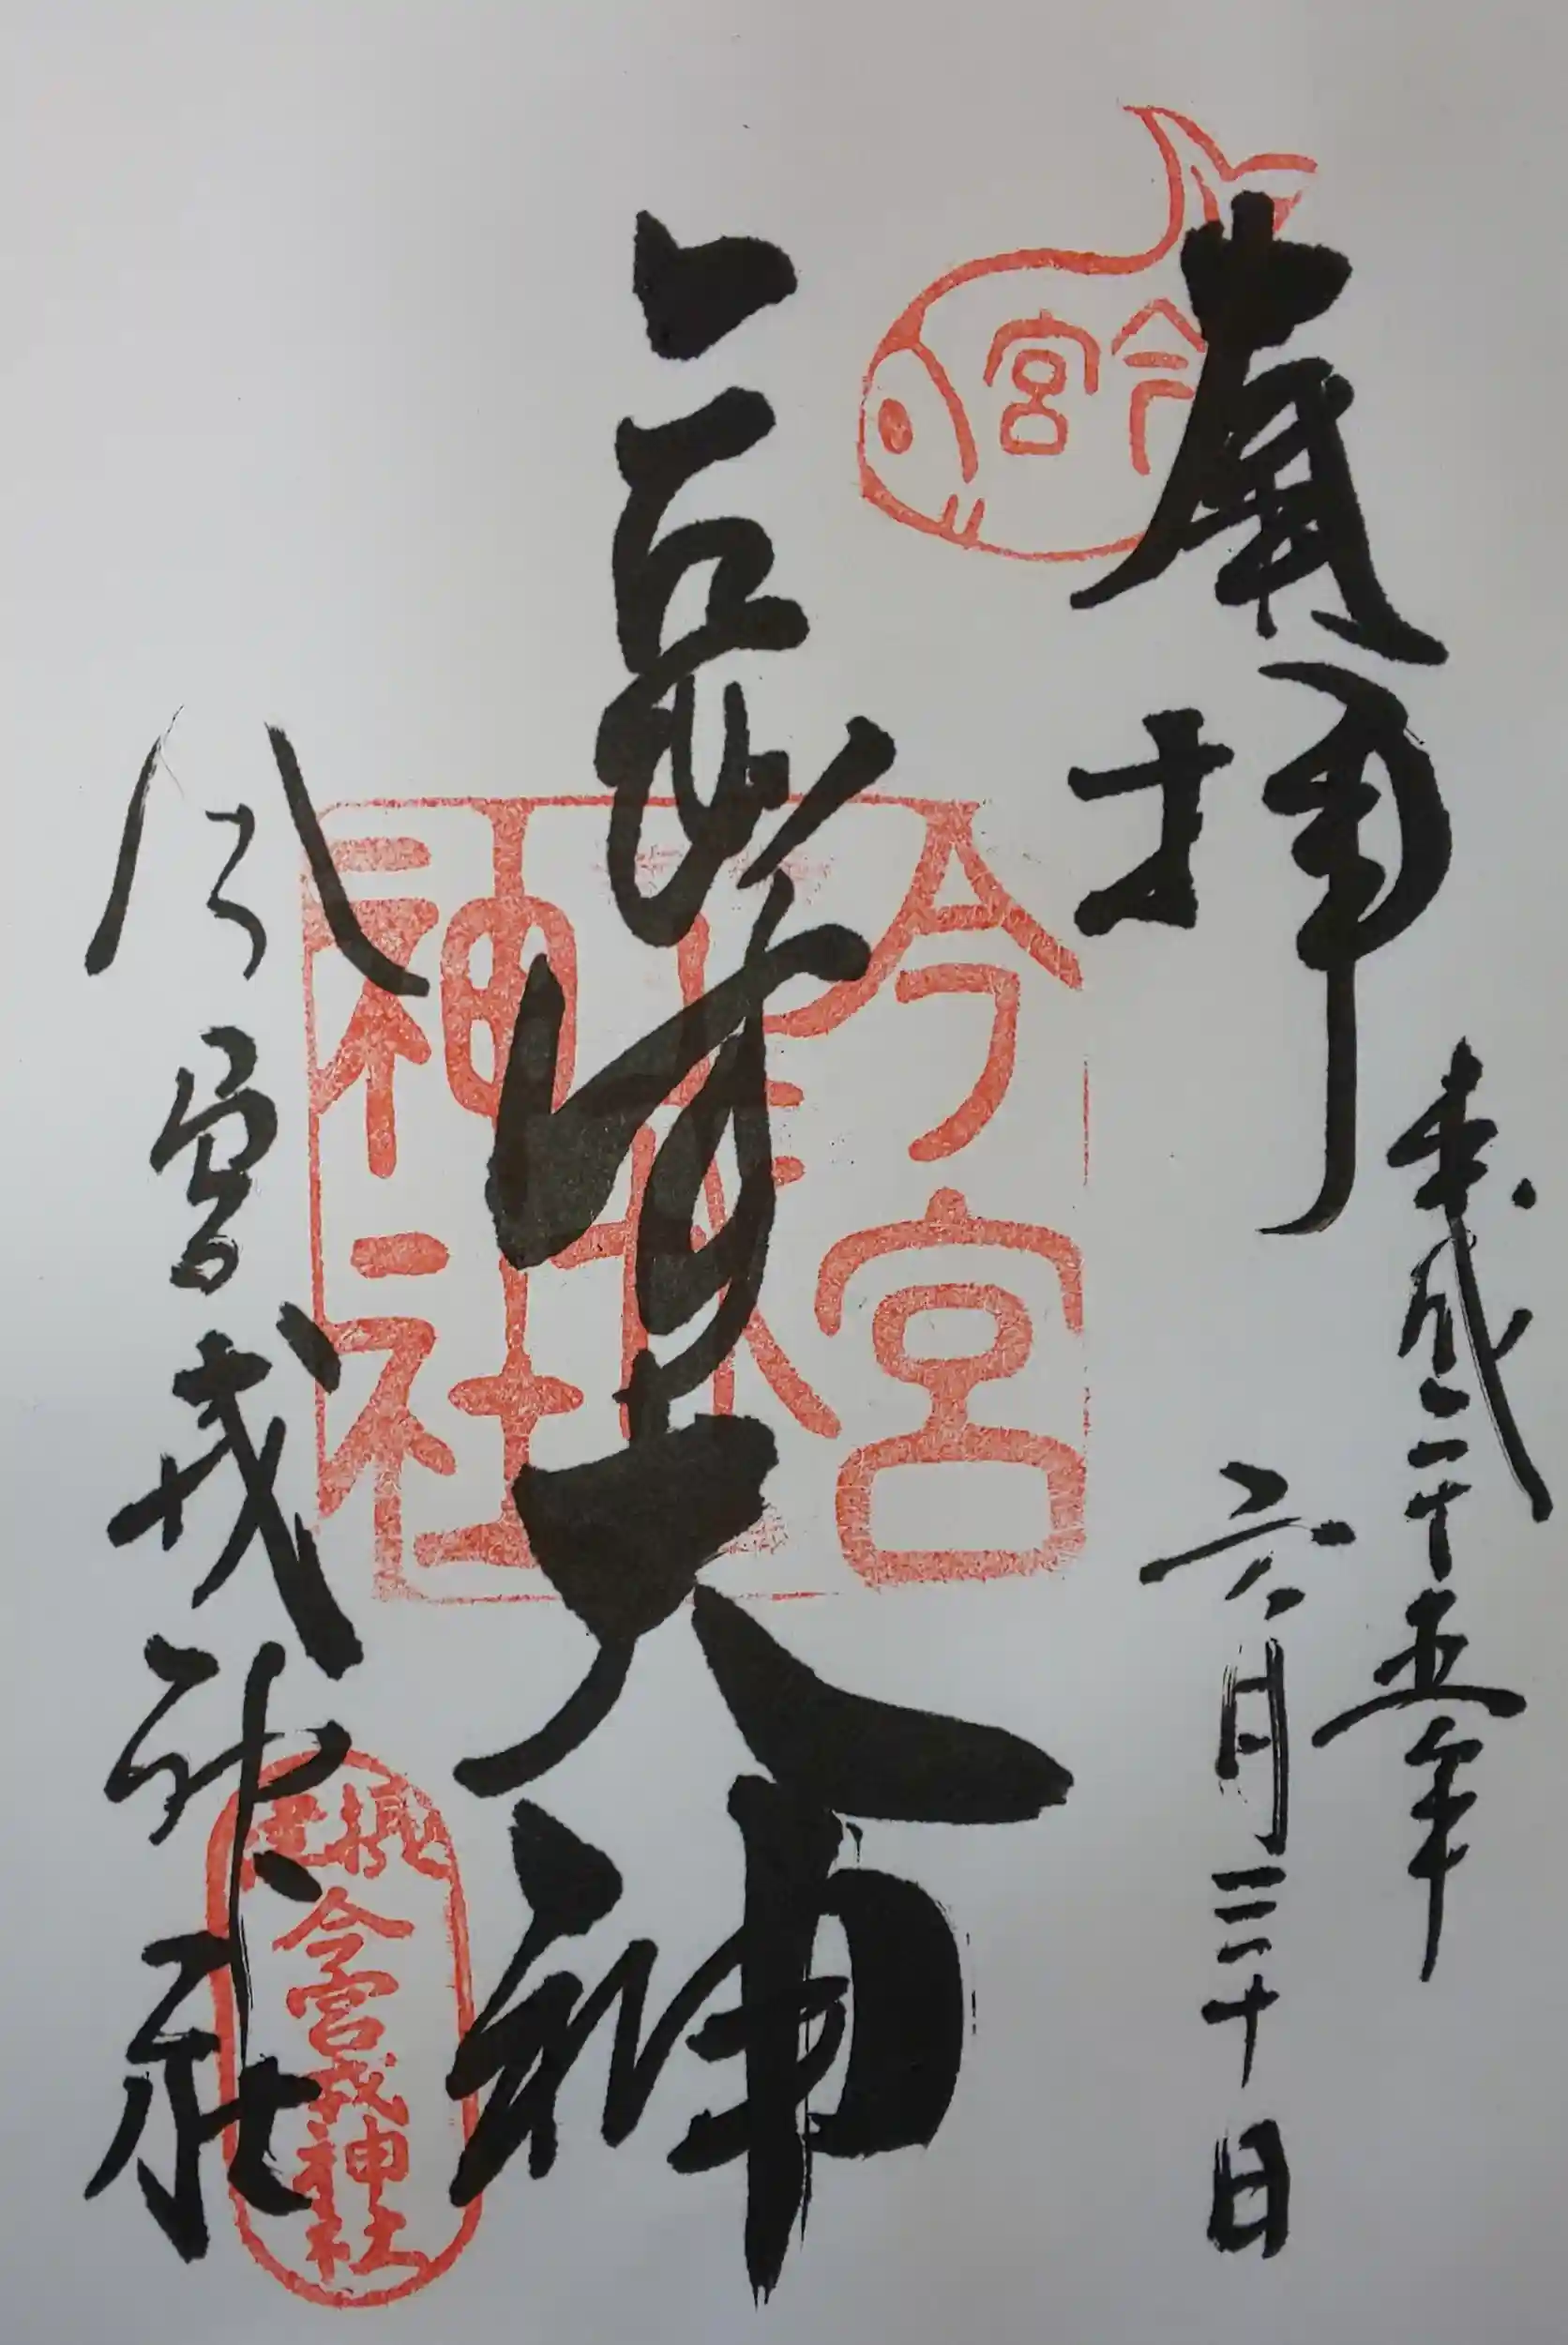 歳拝
平成二十五年
六月三十日
今宮
大神
今宮戎神社
今宮戎神社
今宮戎神社